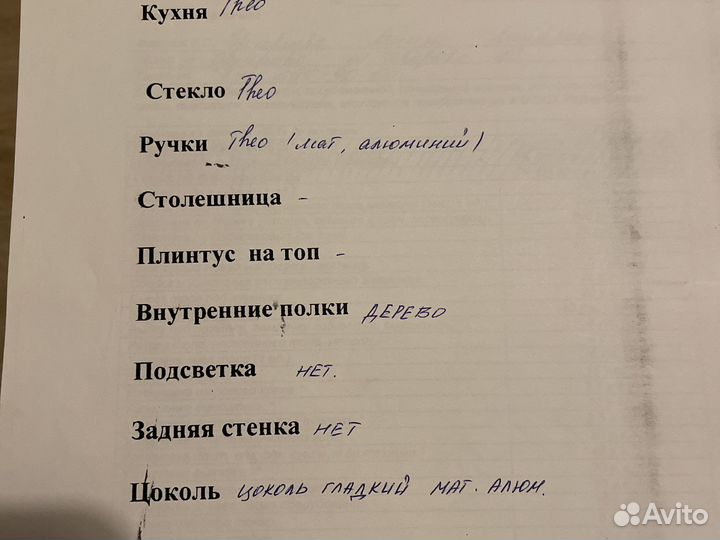 Кухня Theo
Стекло Theo
Ручки Theo (мат, алюминий)
Столешница -
Плинтус на топ -
Внутренние полки ДЕРЕВО
Подсветка НЕТ.
Задняя стенка НЕТ
Цоколь ЦОКОЛЬ ГЛАДКИЙ МАТ. АЛЮМ.
Avito